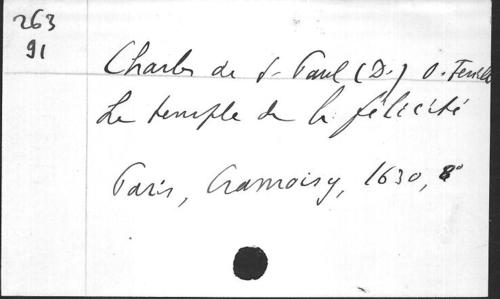 263
91
Charles de St Paul (D.) O. Feuill
Le temple de la félicité
Paris, Cramoisy, 1630, 8°